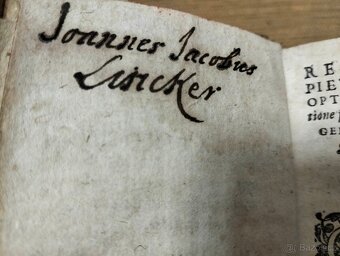 Joannes Jacobus
Lincker
RE
PIE
OPT
tione
GEN